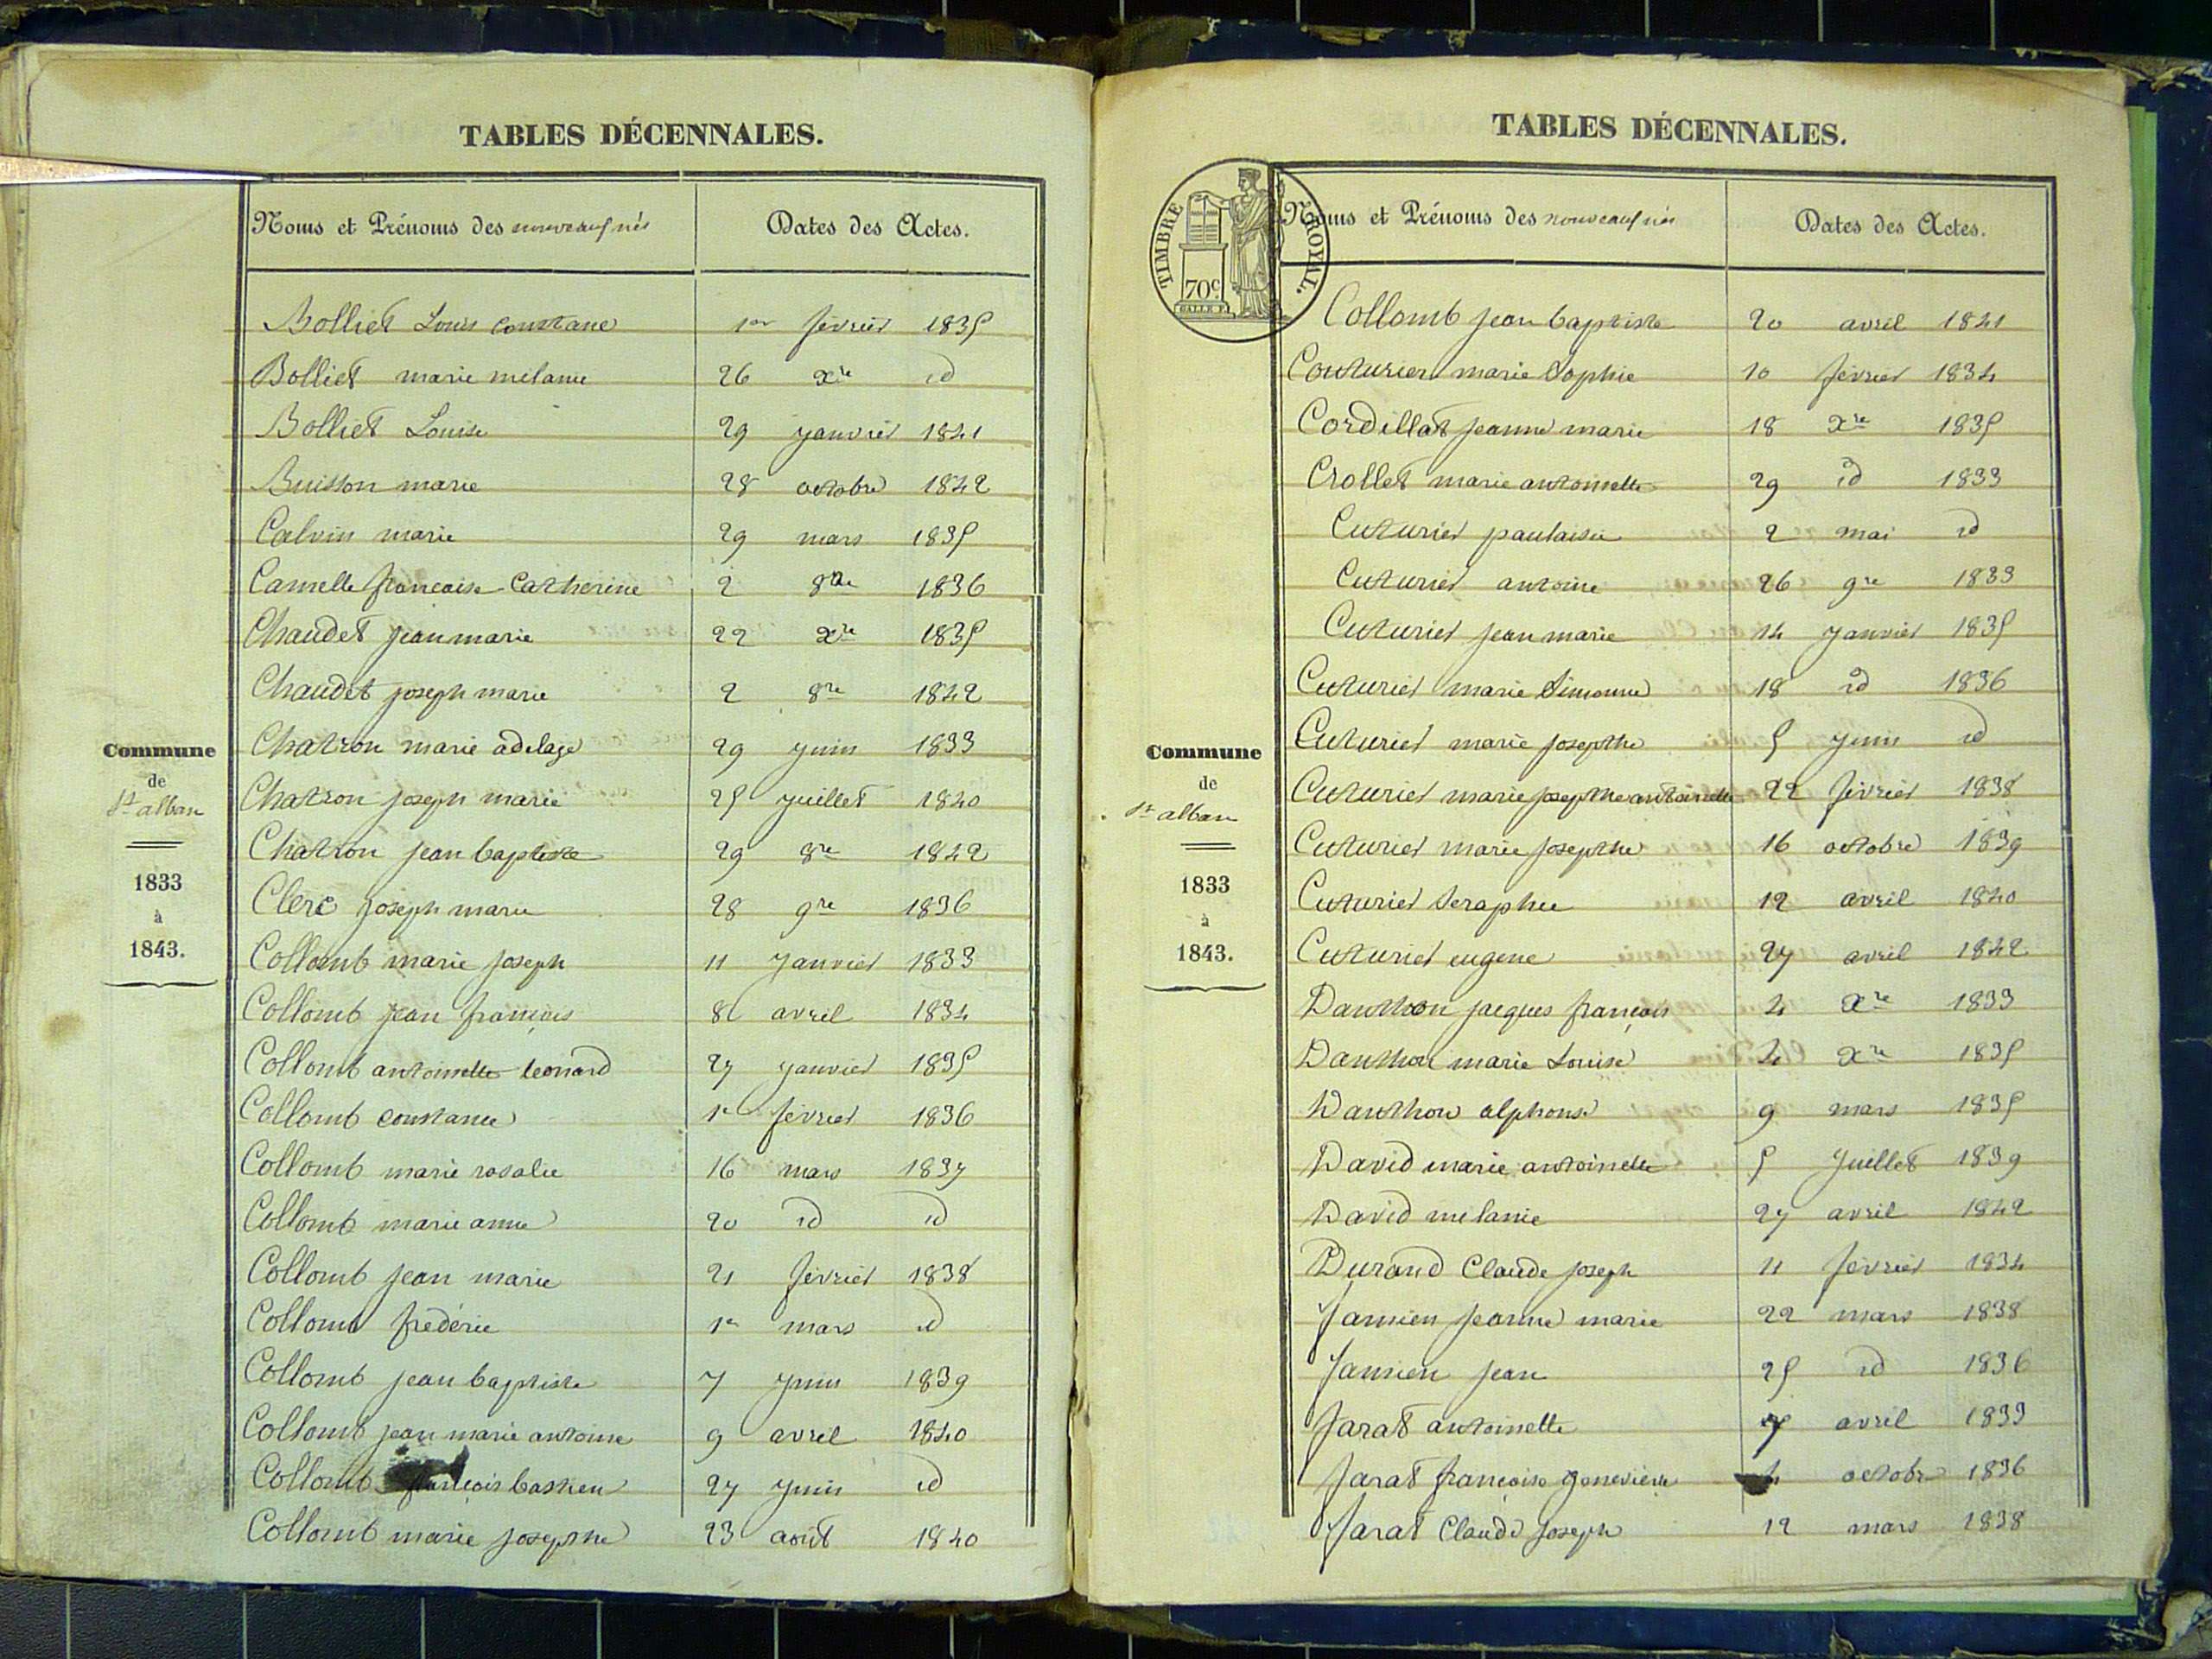 TABLES DÉCENNALES.
Noms et Prénoms des nouveaux nés Dates des Actes.
Bolliet Louis constance 1er février 1835
Bolliet marie melanie 26 xre id
Bolliet Louise 29 janvier 1841
Buisson marie 28 octobre 1842
Calvin marie 29 mars 1835
Camelle francoise Catherine 2 8re 1836
Chaudet jean marie 22 xre 1835
Chaudet joseph marie 2 8re 1842
Chatron marie adelage 29 juin 1833
Chatron joseph marie 25 juillet 1840
Chatron jean baptiste 29 8re 1842
Clerc joseph marie 28 9re 1836
Collomb marie joseph 11 janvier 1833
Collomb jean françois 8 avril 1834
Collomb antoinette leonard 27 janvier 1835
Collomb constance 1er février 1836
Collomb marie rosalie 16 mars 1837
Collomb marie anne 20 id id
Collomb jean marie 21 février 1838
Collomb fréderic 1er mars id
Collomb jean baptiste 7 juin 1839
Collomb jean marie antoine 9 avril 1840
Collomb françois bastien 27 juin id
Collomb marie josepthe 23 août 1840
Commune
de
St alban
1833
à
1843.
TABLES DÉCENNALES.
TIMBRE ROYAL.
70c
Noms et Prénoms des nouveaux nés Dates des Actes.
Collomb jean baptiste 20 avril 1841
Couturier marie Sophie 10 février 1834
Cordillat jeanne marie 18 xre 1835
Crollet marie antoinette 29 id 1833
Cuturier 2 mai id
Cuturier antoine 26 9re 1833
Cuturier jean marie 14 janvier 1835
Cuturier marie Simonne 18 id 1836
Cuturier marie josepthe 5 juin id
Cuturier marie josepthe antoinette 22 février 1838
Cuturier marie josepthe 16 octobre 1839
Cuturier Seraphie 12 avril 1840
Cuturier eugene 27 avril 1842
Danthon jacques françois 4 xre 1833
Danthon marie Louise 4 xre 1835
Danthon alphonse 9 mars 1835
David marie antoinette 5 juillet 1839
David melanie 27 avril 1842
Durand Claude joseph 11 février 1834
Jamien jeanne marie 22 mars 1838
Jamien jean 25 id 1836
Jarat antoinette 7 avril 1833
Jarat françoise genevieve 4 octobre 1836
Jarat Claude joseph 12 mars 1838
Commune
de
St alban
1833
à
1843.